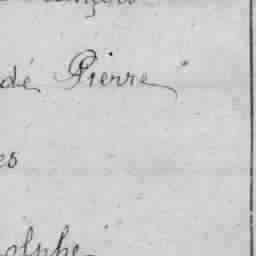 dé Pierre
es
olphe